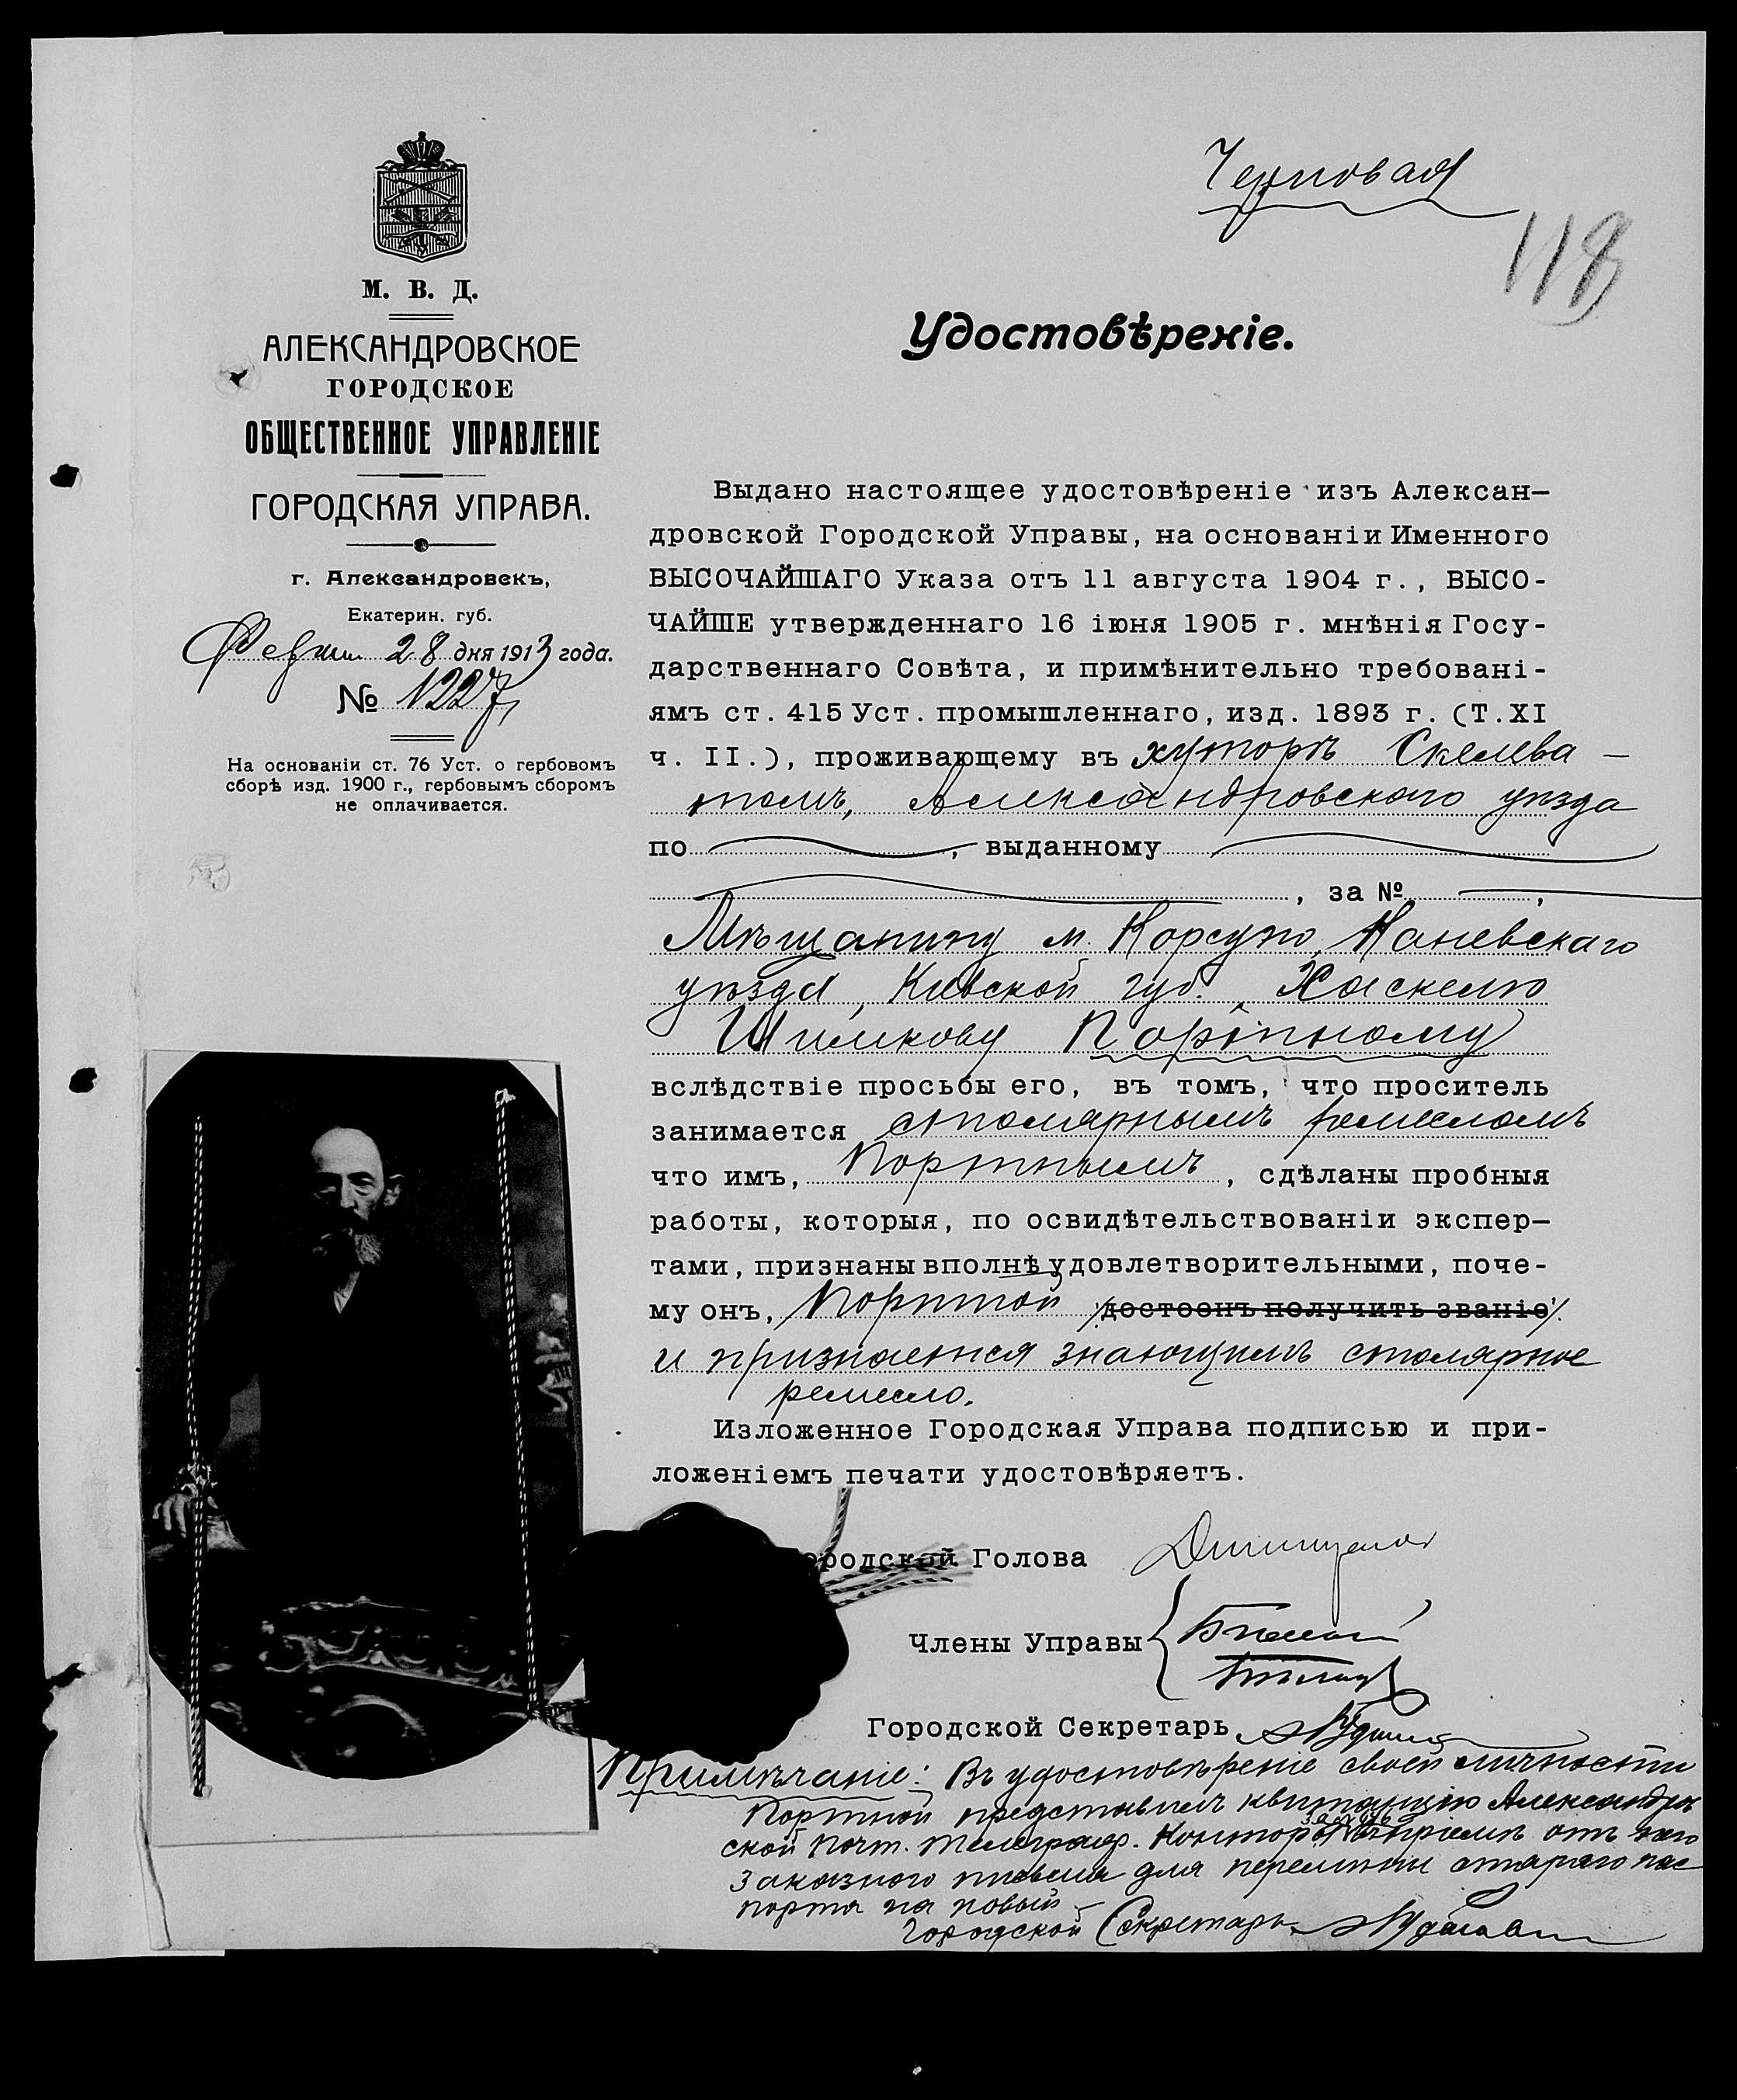 Черновая
118
М. В. Д.
АЛЕКСАНДРОВСКОЕ
ГОРОДСКОЕ
ОБЩЕСТВЕННОЕ УПРАВЛЕНІЕ
ГОРОДСКАЯ УПРАВА.
г. Александровскъ,
Екатерин. губ.
28 дня 1913 года.
№ 1227
На основаніи ст. 76 Уст. о гербовомъ
сборѣ изд. 1900 г., гербовымъ сборомъ
не оплачивается.
Удостовѣреніе.
Выдано настоящее удостовѣреніе изъ Алексан–
дровской Городской Управы, на основаніи Именного
ВЫСОЧАЙШАГО Указа отъ 11 августа 1904 г., ВЫСО-
ЧАЙШЕ утвержденнаго 16 іюня 1905 г. мнѣнія Госу-
дарственнаго Совѣта, и примѣнительно требовані-
ямъ ст. 415 Уст. промышленнаго, изд. 1893 г. (Т. XI
ч. II.), проживающему въ хуторѣ Скелева –
томъ, Александровскаго уѣзда
по , выданному
, за № ,
Мѣщанину м. Корсунь, Каневскаго
уѣзда, Кіевской губ., Хаскелю
Шимкову Портному
вслѣдствіе просьбы его, въ томъ, что проситель
занимается столярнымъ ремесломъ
что имъ, Портнымъ, сдѣланы пробныя
работы, которыя, по освидѣтельствованіи экспер–
тами, признаны вполнѣ удовлетворительными, поче-
му онъ, Портной /достоенъ получить званіе/.
и признается знающимъ столярное
ремесло.
Изложенное Городская Управа подписью и при-
ложеніемъ печати удостовѣряетъ.
ородской Голова
Члены Управы
Городской Секретарь
Примѣчаніе: Въ удостовѣреніе своей личности
Портной представилъ квитанцію Александров
ской Почт. Телеграф. Конторы въ пріемѣ отъ него
заказного письма для перемѣны стараго пас
порта на новый –
Городской Секретарь